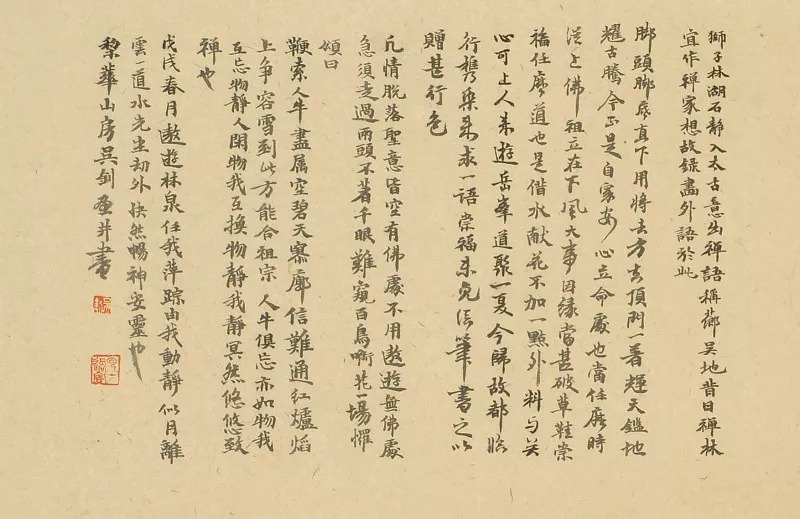 獅子林湖石靜入太古意出禪語稱藏吳地昔日禪林
宜作禪家想故録畫外語於此
脚頭脚底直下用將去方有頂門一著輝天鑑地
耀古騰今正是自家安心立命處也當任麼時
從上佛祖立在下風大事因緣當甚破草鞋崇
福任麼道也是借水献花不加一點外料与关
心可上人來遊岳峯道聚一夏今歸故都臨
行携來求一語崇福未免信筆書之以
贈甚行色
凡情脱落聖意皆空有佛處不用遨遊無佛處
急須走過兩頭不著千眼難窺百鳥啣花一場懼
頌曰
鞭索人牛盡属空碧天寥廓信難通红爐焰
上争容雪到此方能合祖宗 人牛俱忘亦如物我
互忘物靜人閑物我互換物靜我靜冥然悠悠致
禪也
戊戌春月遨遊林泉任我萍踪由我動靜似月離
雲一道水先生劫外快然暢神安靈也
梨華山房吳剑 并書